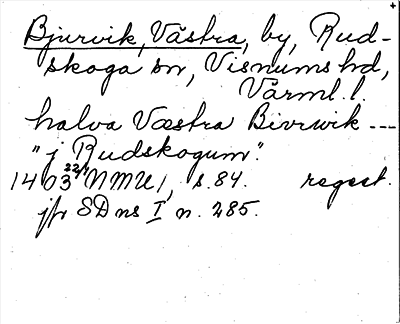 Bjurvik, Västra, by, Rud-
skoga sn, Visnums hd,
Värml. l.
halva Væstra Bivrwik ---
"j Rudskogum".
1403 22/1 NMU 1, s. 84. regest.
jfr SD ns I n. 285.